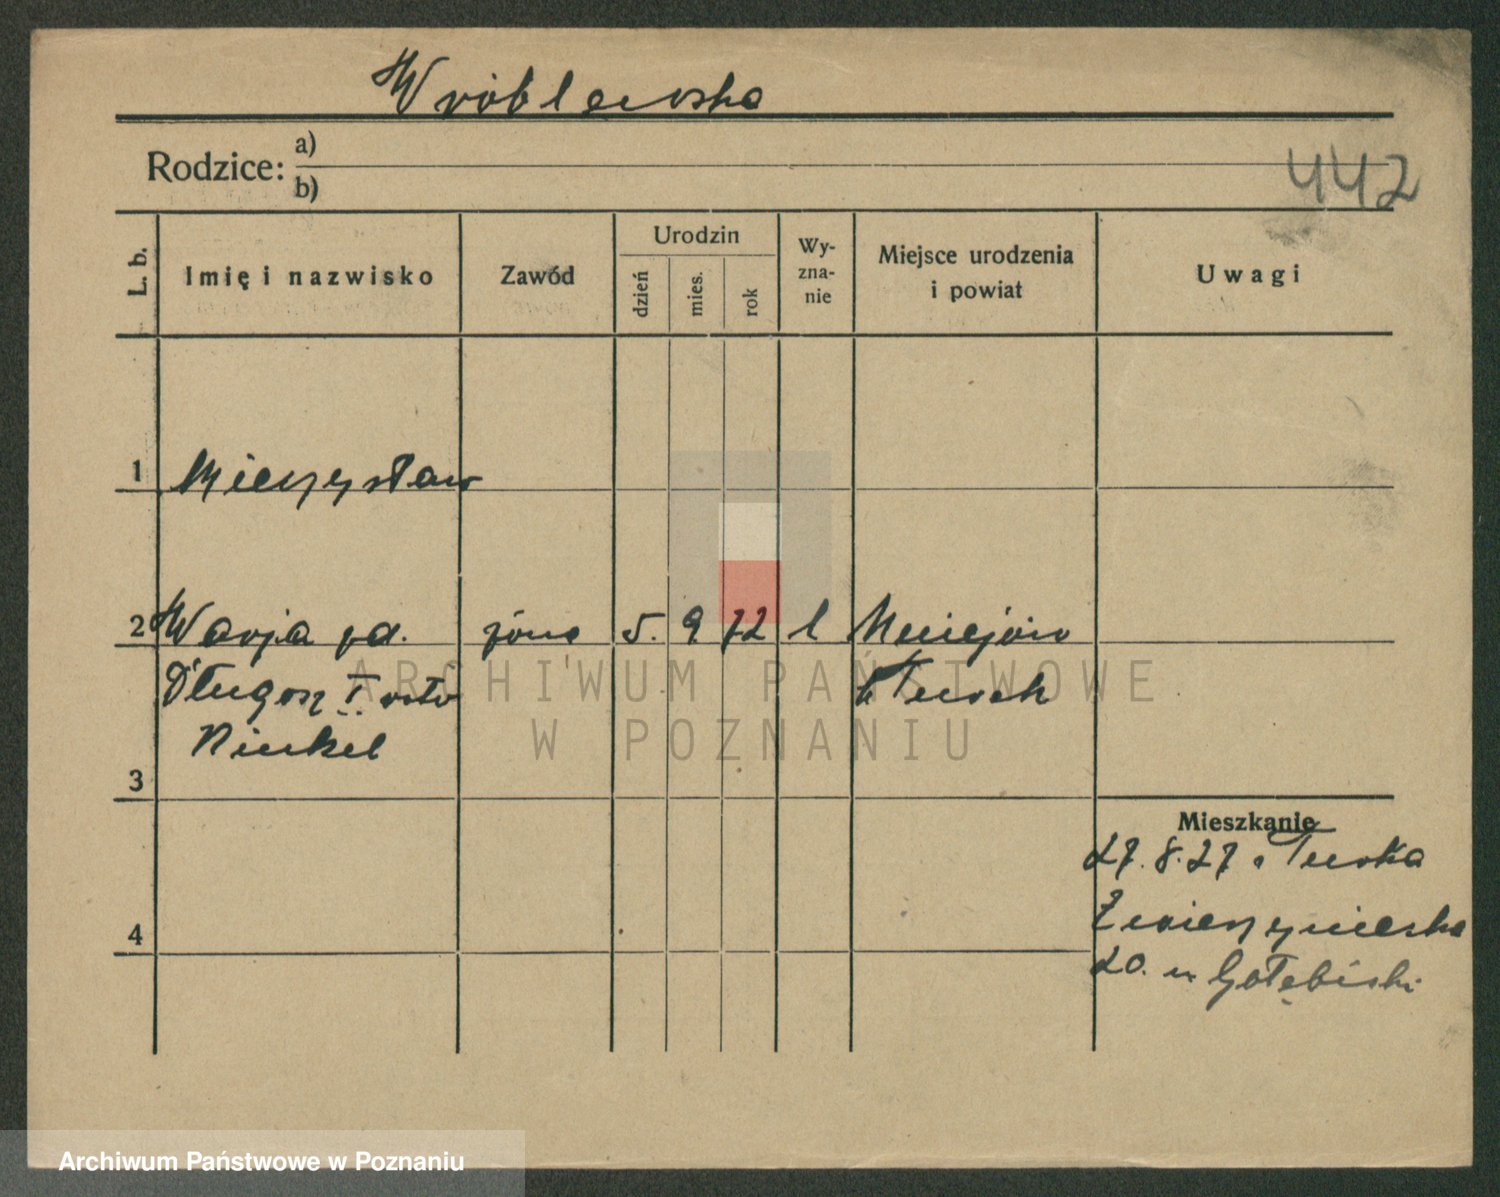 Wróblewska
Rodzice: a)
b)
442
L. b.
Imię i nazwisko
Zawód
Urodzin
dzień
mies.
rok
Wy-
zna-
nie
Miejsce urodzenia
i powiat
Uwagi
1 Mieczysław
2 Marja żona 5. 9 72 k
Długosz I voto
Ninkel
Turek
3
Mieszkanie
27.8.27 z Turka
Zwierzyniecka
4
20. u Gołębiski
ARCHIWUM PAŃSTWOWE
W POZNANIU
Archiwum Państwowe w Poznaniu